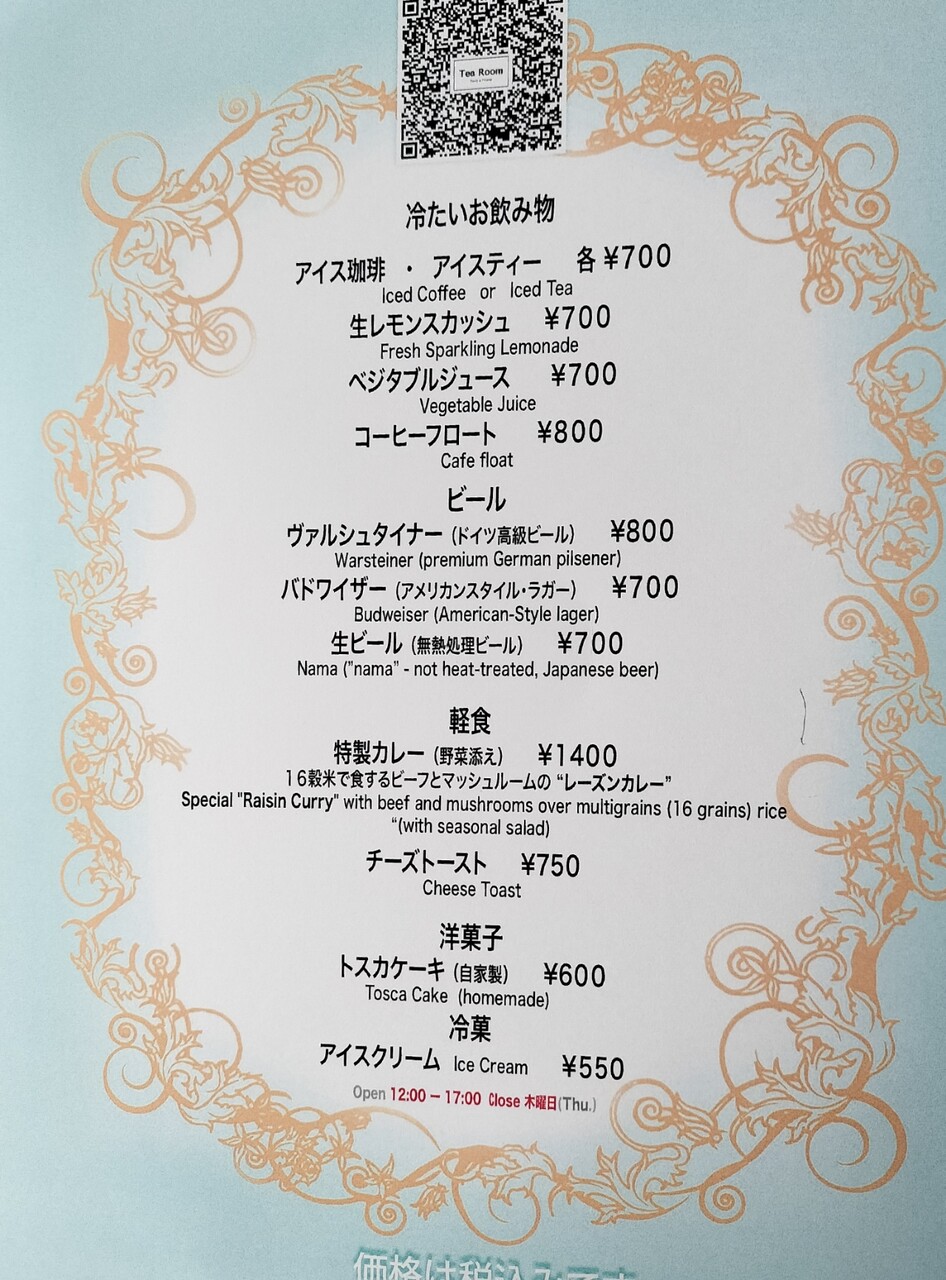 Tea Room
冷たいお飲み物
アイス珈琲 ・ アイスティー 各 ¥700
Iced Coffee or Iced Tea
生レモンスカッシュ ¥700
Fresh Sparkling Lemonade
ベジタブルジュース ¥700
Vegetable Juice
コーヒーフロート ¥800
Cafe float
ビール
ヴァルシュタイナー（ドイツ高級ビール） ¥800
Warsteiner (premium German pilsener)
バドワイザー（アメリカンスタイル・ラガー） ¥700
Budweiser (American-Style lager)
生ビール（無熱処理ビール） ¥700
Nama ("nama" - not heat-treated, Japanese beer)
軽食
特製カレー（野菜添え） ¥1400
16穀米で食するビーフとマッシュルームの “レーズンカレー”
Special "Raisin Curry" with beef and mushrooms over multigrains (16 grains) rice
“(with seasonal salad)
チーズトースト ¥750
Cheese Toast
洋菓子
トスカケーキ（自家製） ¥600
Tosca Cake (homemade)
冷菓
アイスクリーム Ice Cream ¥550
Open 12:00 － 17:00 Close 木曜日(Thu.)
価格は税込みです